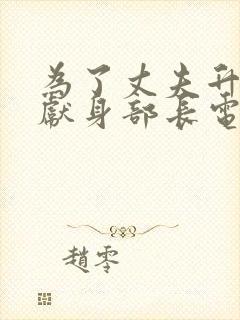 為了丈夫升
獻身部長電
趙零